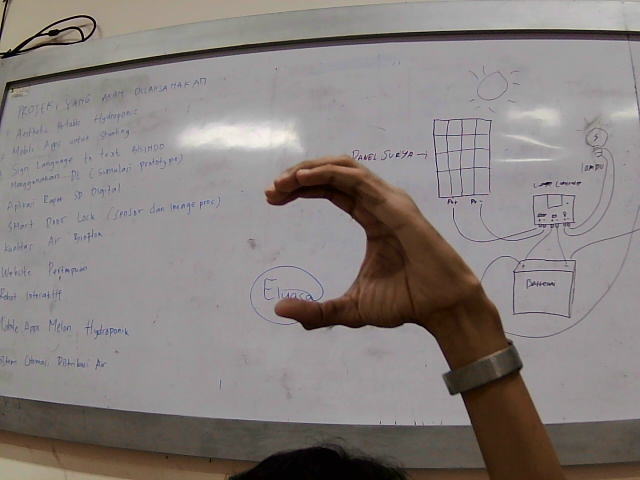 PROJEK YANG AKAN DILAKSANAKAN
Aesthetic Portable Hydroponic
Mobile Apps untuk Stunting
Sign Language to text BISINDO
Menggunakan DL (Simulasi prototype)
Aplikasi Rapor SD Digital
Smart Door Lock (Sensor dan image proc)
Kualitas Air Bioflok
Website
Robot Interaktif
Mobile Apps Melon Hydroponik
Sistem Otomasi Distribusi Air
Eluasa
PANEL SURYA →
P+ P-
LAMPU
Baterai